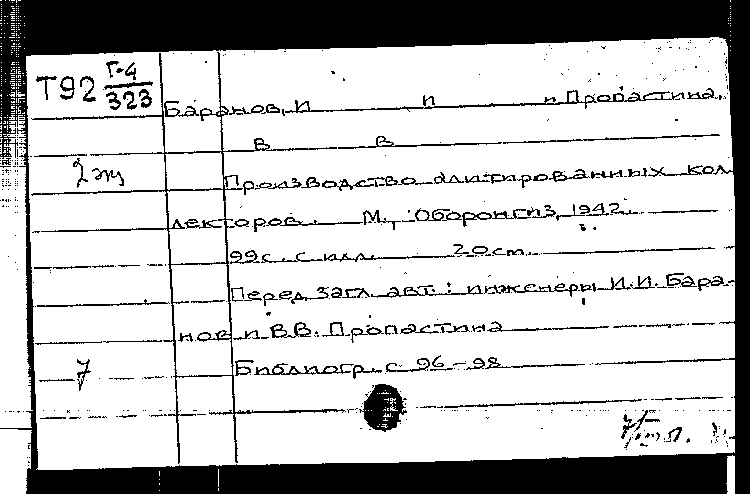 Т92 Г-4
323
Баранов, И И и Пропастина,
В В
2 эк
Производство алитированных кол
лекторов. М., Оборонгиз, 1942.
99 с. с илл. 20 см.
Перед загл. авт.: инженеры И.И. Бара-
нов и В.В. Пропастина
Библиогр. с 96-98
7